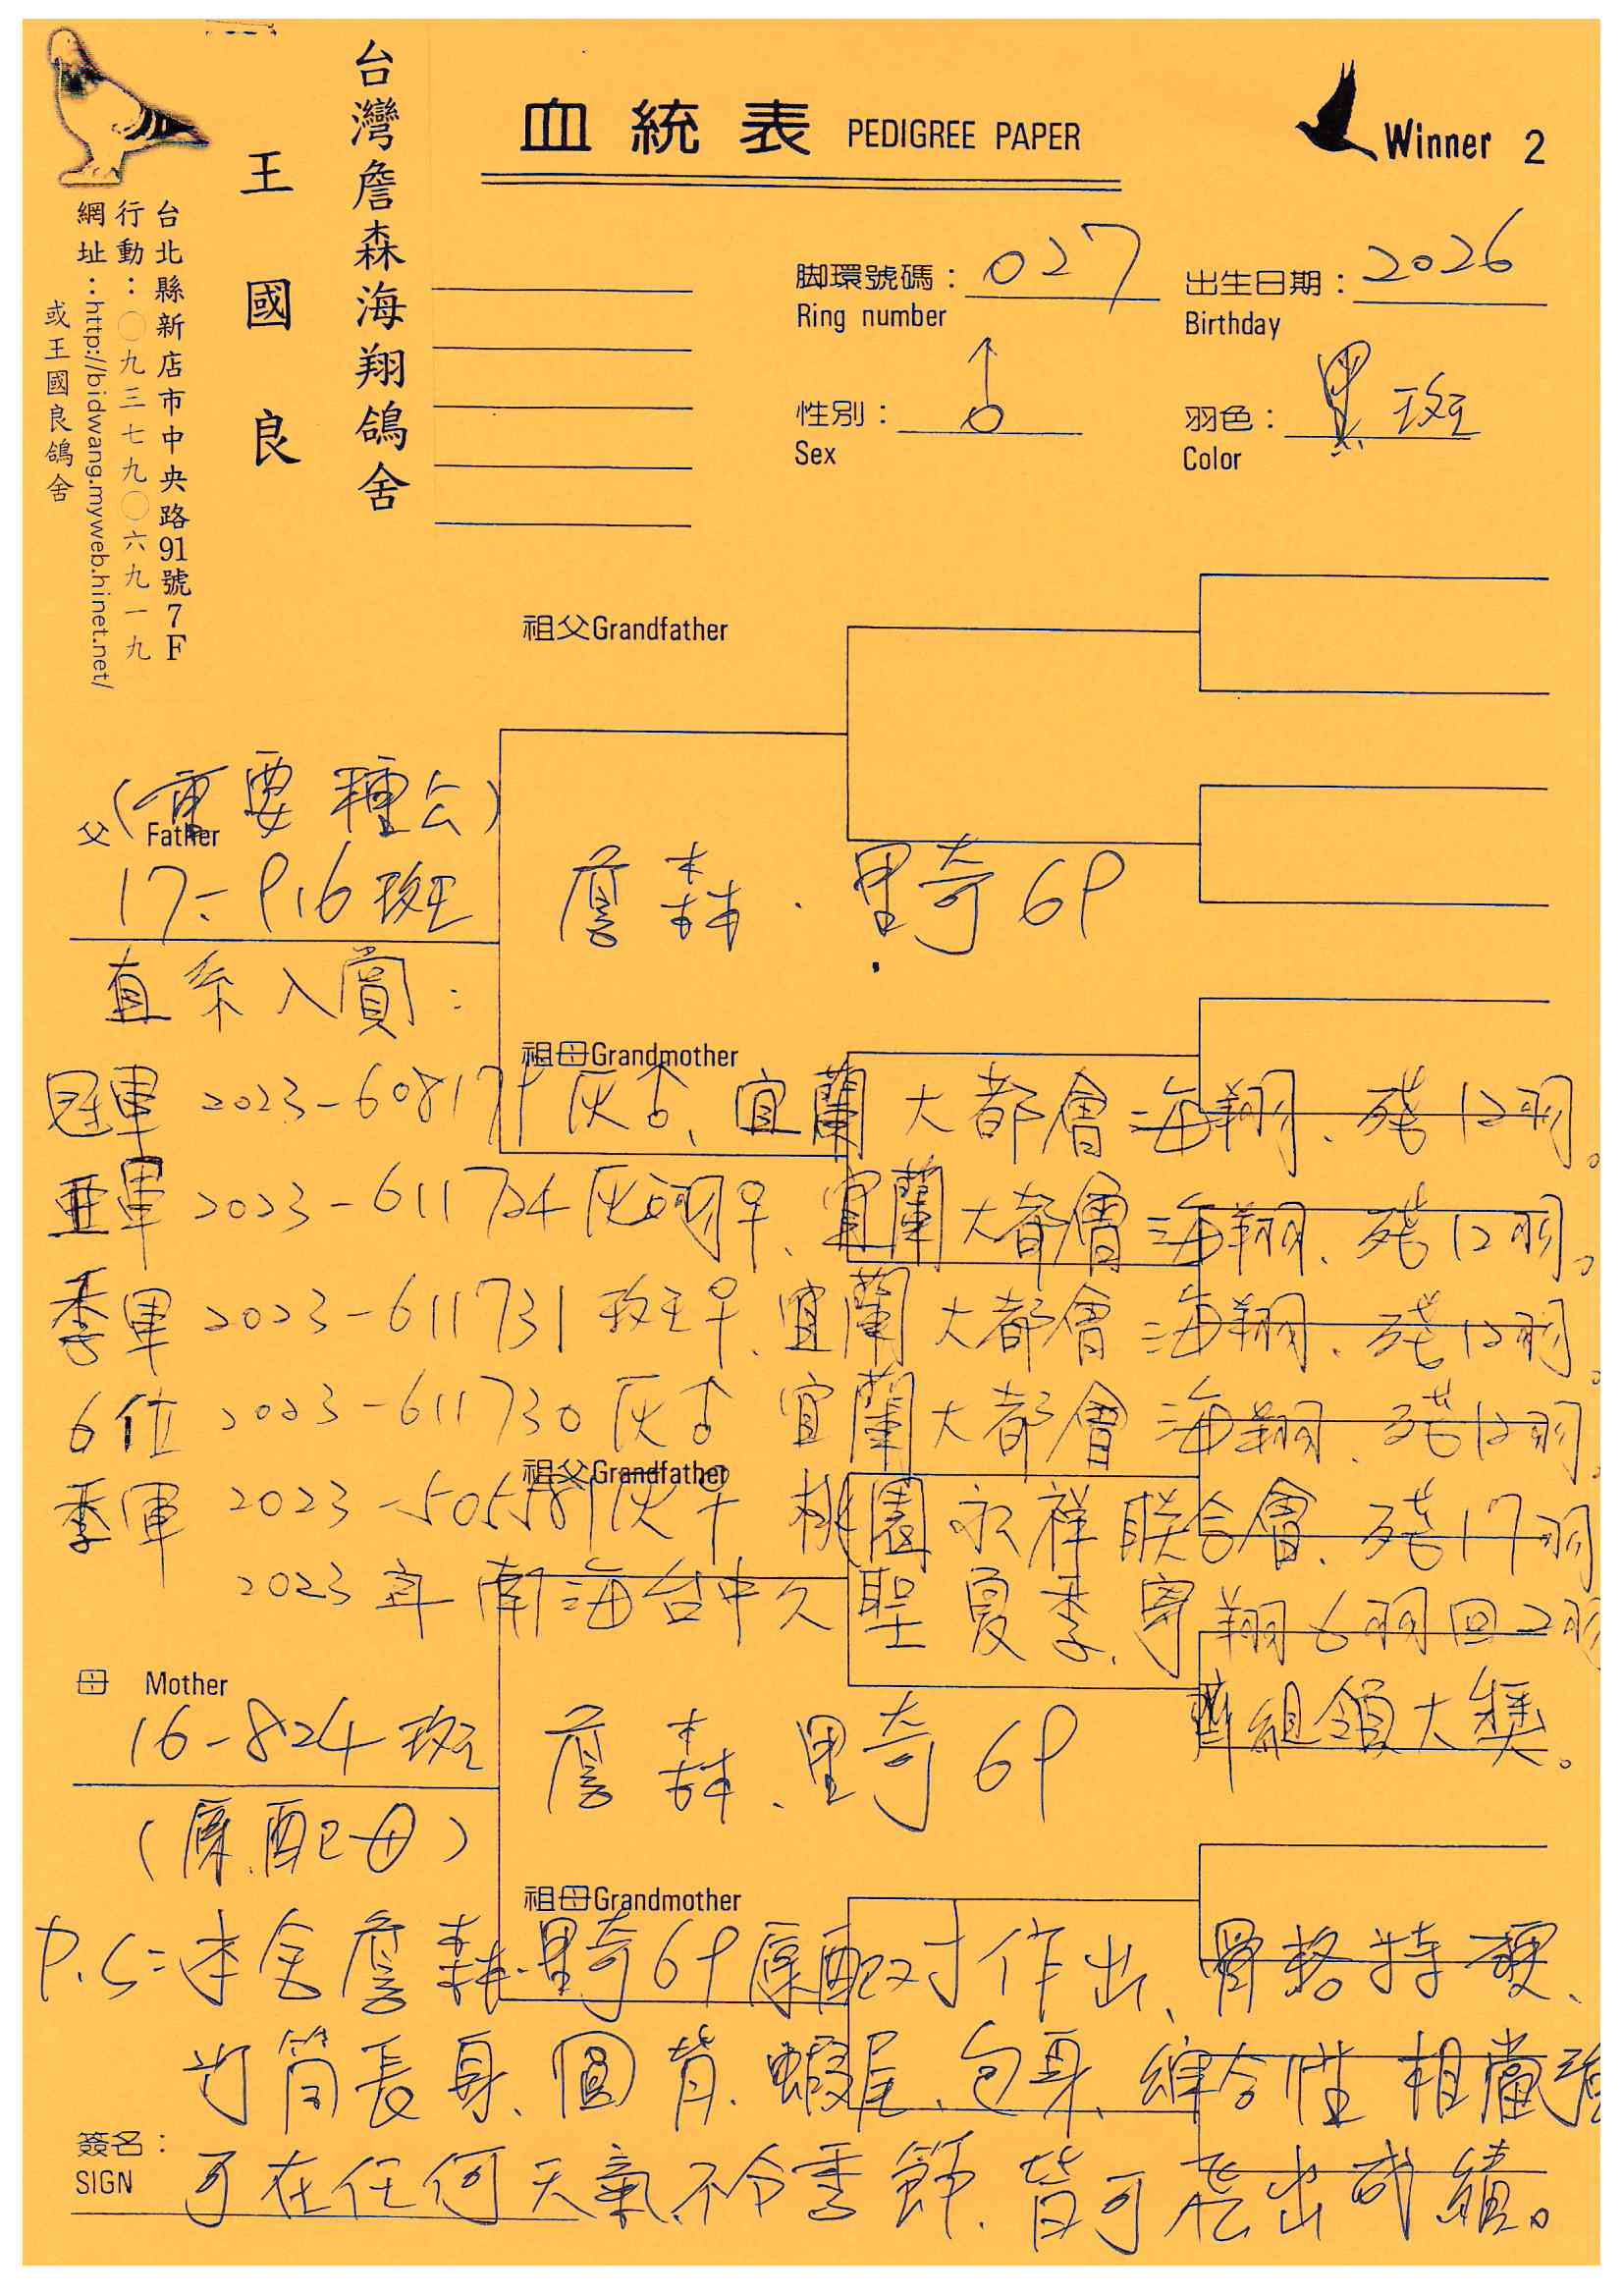 台灣詹森海翔鴿舍
王國良
台北縣新店市中央路91號7F
行動：○九三七九○六九一九
網址：http://bidwang.myweb.hinet.net/
或王國良鴿舍
血統表 PEDIGREE PAPER
Winner 2
脚環號碼： 027
Ring number
出生日期： 2026
Birthday
性別：
Sex
羽色： 黑斑
Color
祖父Grandfather
(重要種公)
父 Father
17-916斑
詹森.里奇69
直系入賞：
祖母Grandmother
冠軍 2023-608179灰♂、宜蘭大都會海翔、殘12羽。
亞軍 2023-611724灰硐♀、宜蘭大都會海翔、殘12羽。
季軍 2023-611731斑♀、宜蘭大都會海翔、殘12羽。
6位 2023-611730灰♂ 宜蘭大都會海翔、殘12羽。
祖父Grandfather
季軍 2023-505581灰♀ 桃園永祥联合會、殘17羽
2023年南海台中久聖夏季、寄翔6羽回2羽
齊組領大獎。
母 Mother
16-824斑
詹森.里奇69
(原配母)
祖母Grandmother
P.S：本舍詹森.里奇69原配对作出、骨格特硬、
筒長身、圓背、蝦尾、包身、綜合性相當強
簽名：
SIGN
可在任何天氣、不分季節、皆可飛出成績。